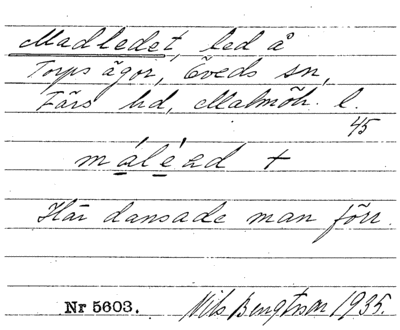 Madledet, led å
Torps ägor, Öveds sn,
Färs hd, Malmöh. l.
45
málé ad +
Här dansade man förr.
Nr 5603. Nils Bengtsson 1935.